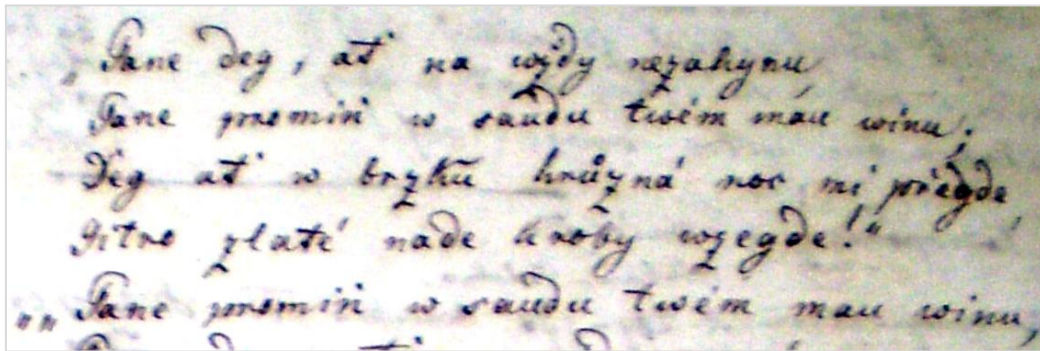 „Pane deg, ať na wždy nezahynu,
Pane promiň w saudu twém mau winu;
Deg ať w brzku hrůzná noc mi přegde,
Gitro zlaté nade hroby wzegde!“
„„Pane promiň w saudu twém mau winu,